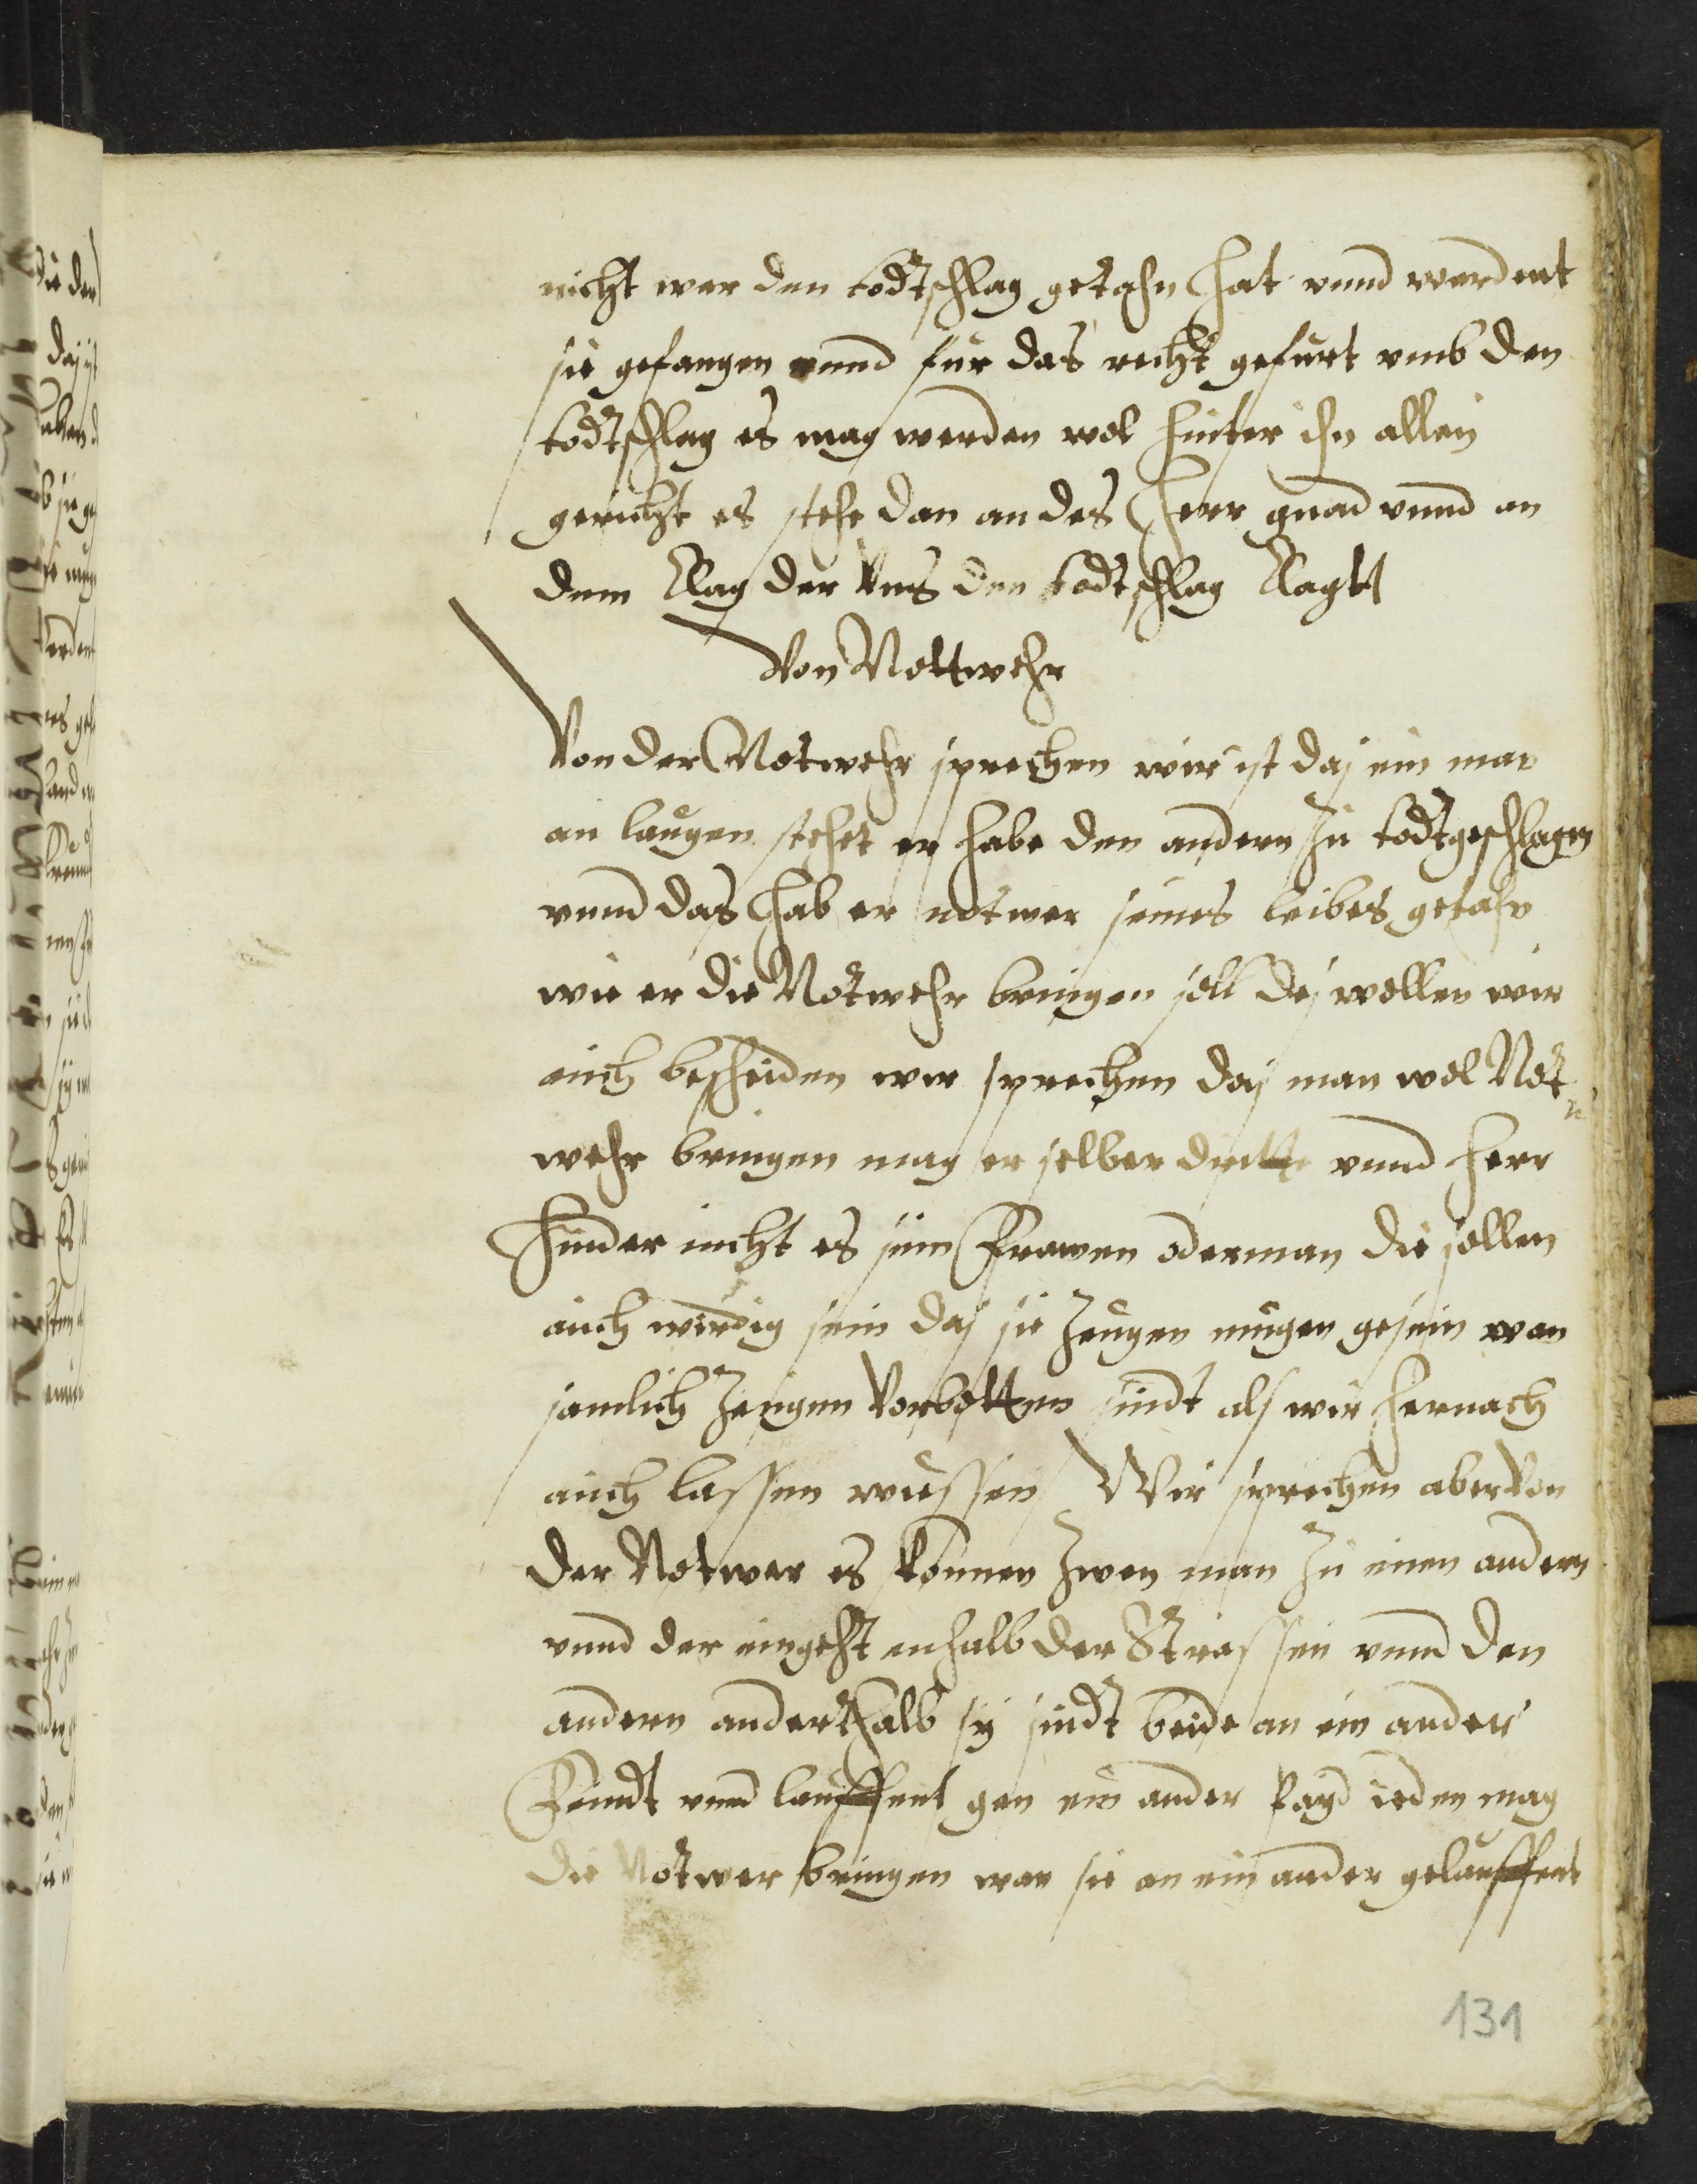 nicht wer den todtschlag getahn hat vnnd werdent
sie gefangen vnnd fur das recht gefurt vmb den
todtschlag es mag werden wol hinter ihn allen
gericht es stehe dan an des Herr gnad vnnd an
dem Clag der vns den todtschlag Clagtt
Von Nottwehr
Von der Notwehr sprechen wir ist das ein man
an laugen stehet er habe den andern zu todtgeschlagen
vnnd das hab er notwer seines leibes getahn
wie er die Notwehr bringen soll des wollen wir
eüch bescheiden wir sprechen das man wol Not
wehr bringen mag er selber dritte vnnd herr
hinder nicht es sein Frawen oder man die sollen
auch wirdig sein das sie Zeugen mugen gesein wan
samlich Zeugen Verbotten sindt als wir hernach
auch lassen wüssen Wir sprechen aber von
der Notwer es komen Zwen man zu einen andern
vnnd der ein geht enhalb der Strassen vnnd den
andern anderthalb sy sindt beide an ein ander
Feindt vnnd lauffent gen ein ander jeden mag
die Notwer bringen wan sie an ein ander gelauffent
131